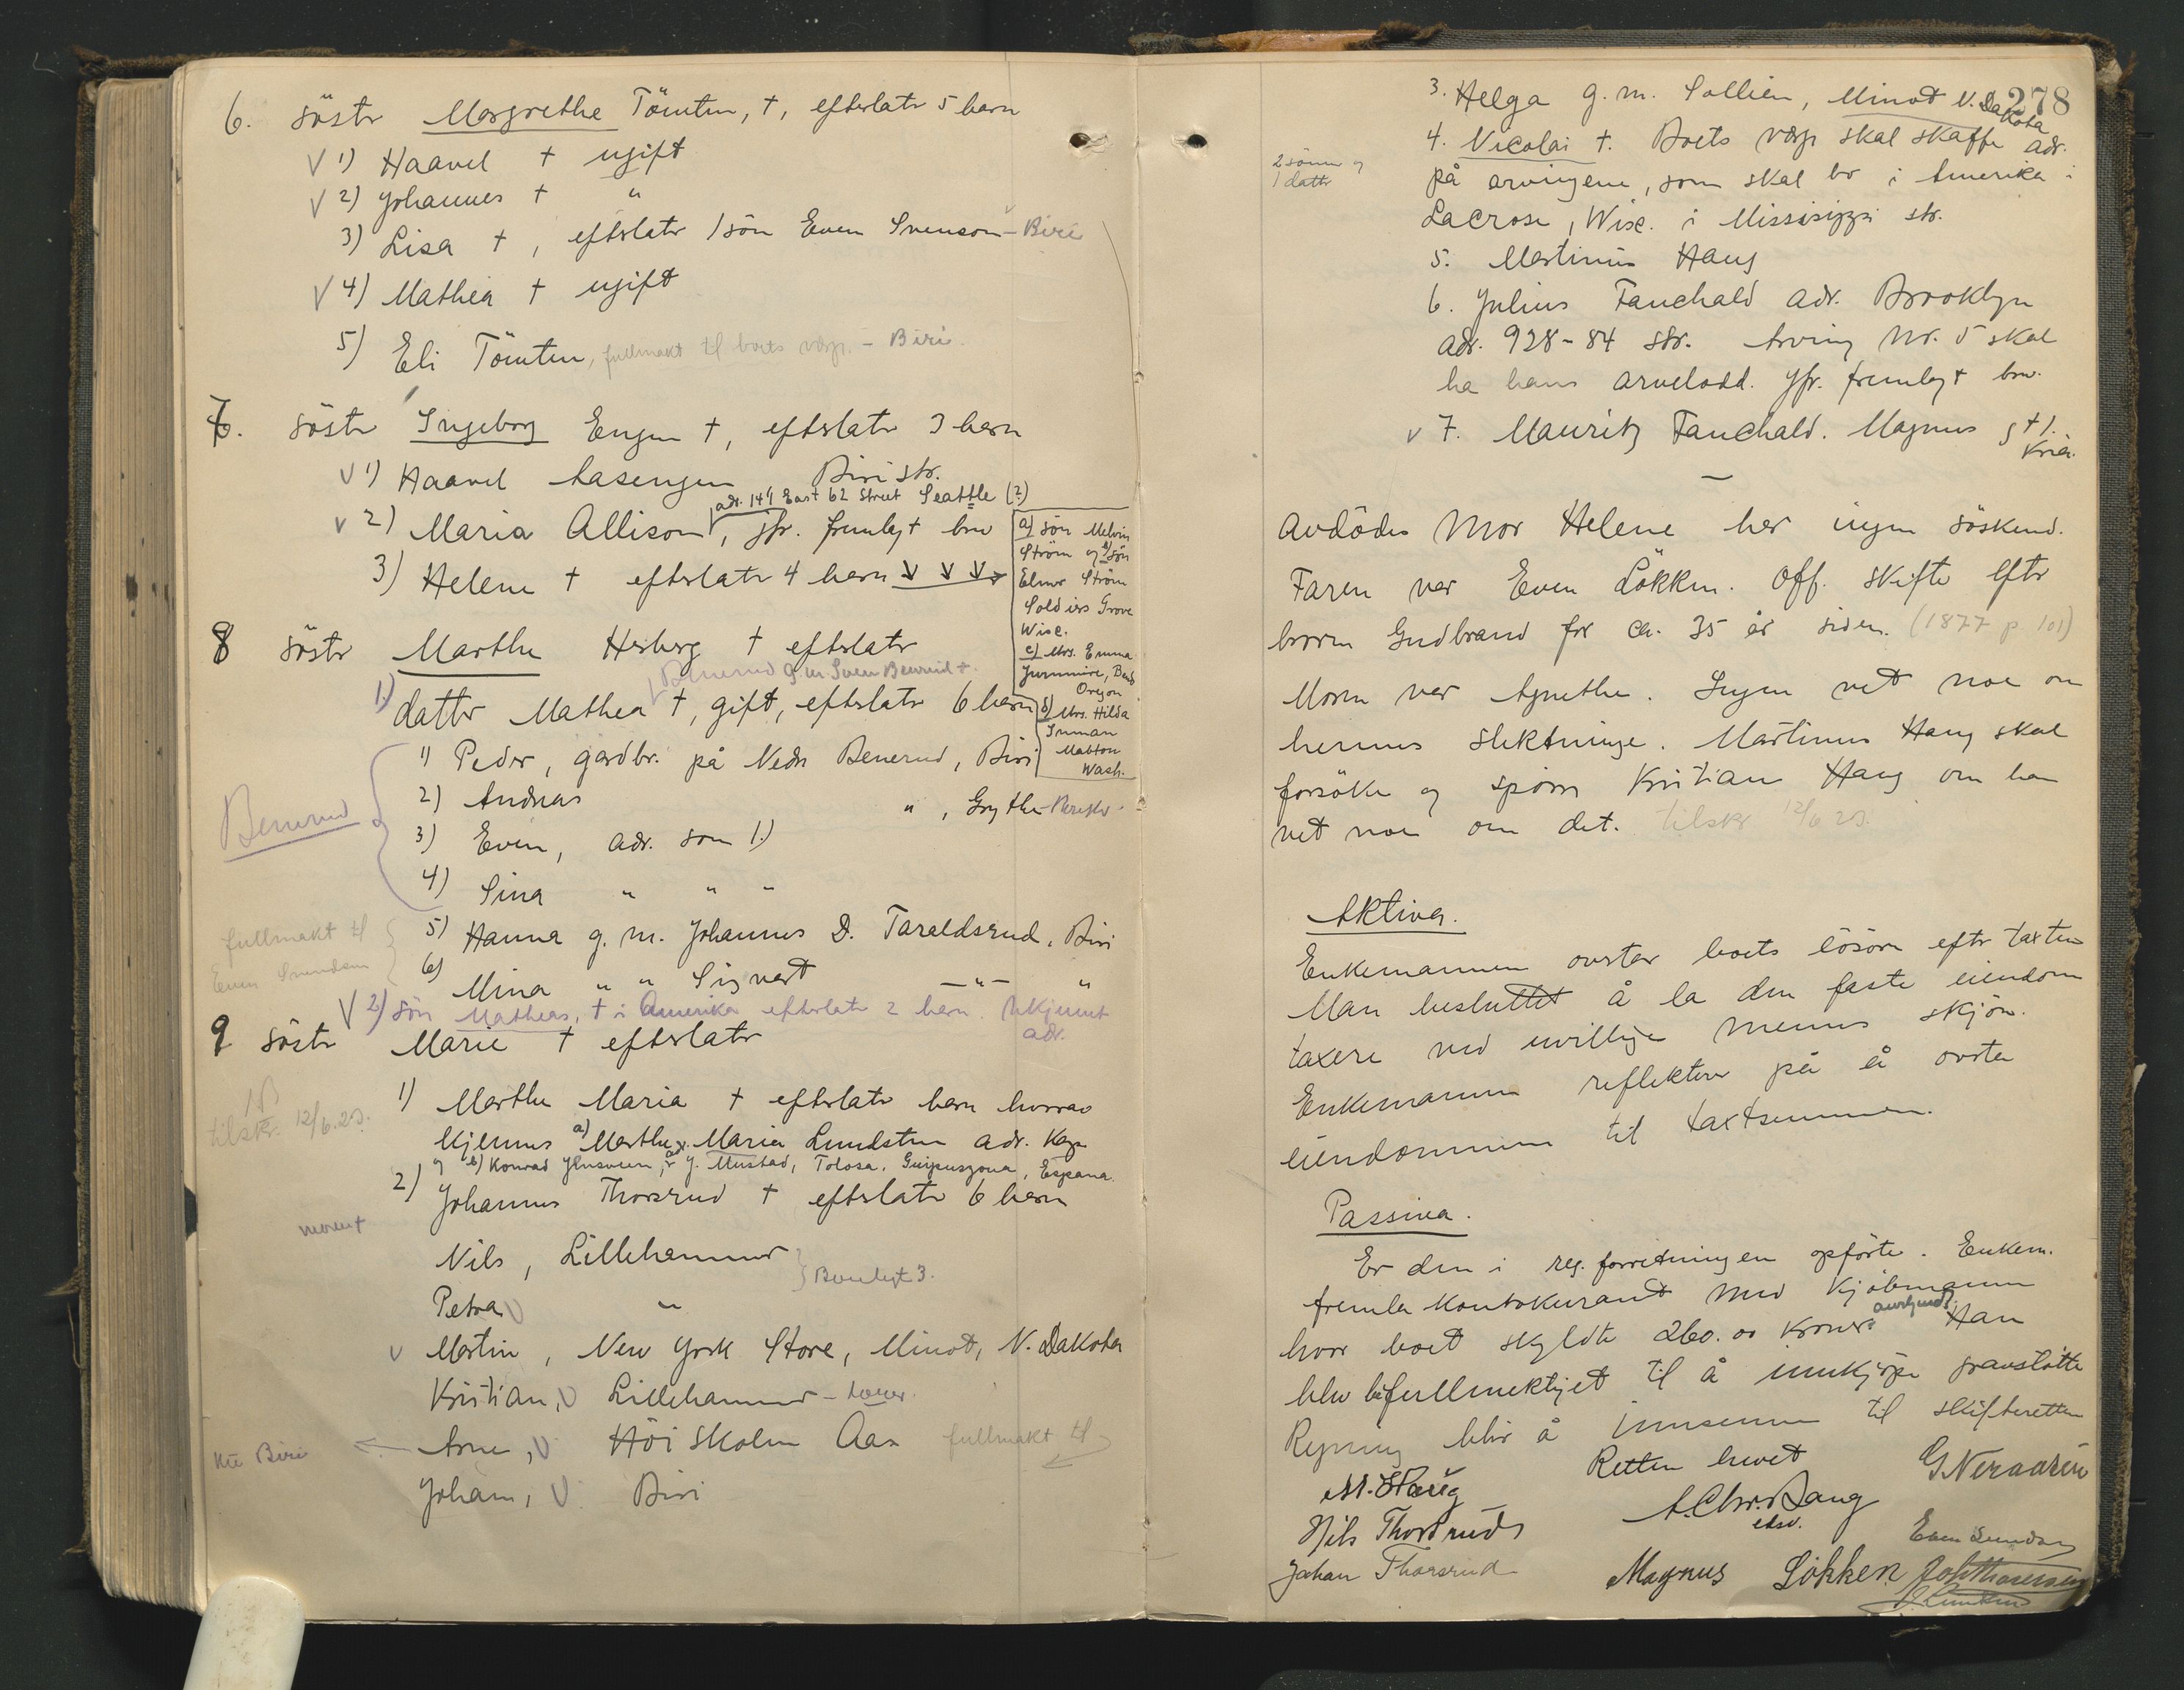 6. söster Margrethe Tömten, †, efterlater 5 barn
V 1) Haavel † ugift
V 2) Johannes † "
3) Lisa †, efterlater 1 sön Even Svenson - Biri
V 4) Mathea † ugift
5) Eli Tömten, fullmakt til boets verge. - Biri.
7. söster Ingeborg Engen †, efterlater 3 barn
V 1) Haavel Aasengen Biri str.
adr. 141 East 62 Street Seattle (?)
V 2) Maria Allison, jfr. fremlagt brev
3) Helene † efterlater 4 barn
a) sön Melvin
Ström og b) sön
Elmer Ström
Soldiers Grove
Wisc.
c) Mrs. Emma
Oregon
d) Mrs. Hilda
Inman
Mabton
Wash.
8 söster Marthe Herberg † efterlater
Benerud g.m. Sven Benerud †.
1) datter Mathea †, gift, efterlater 6 barn
1) Peder, gardbr. på Nedre Benerud, Biri
2) Andreas " , Grythe
Benerud
3) Even, adr. som 1)
4) Sina " " "
fullmakt til
Even Svendsen
5) Hanna g. m. Johannes D. Taraldsrud, Biri
6) Mina " " Sigvart - " - "
V 2) sön Mathias, † i Amerika efterlater 2 barn. Ukjennt
adr.
9 söster Marie † efterlater
tilskr. 12/6.23.
1) Marthe Maria † efterlater barn hvorav
kjennes a) Marthe Maria Lundsten adr. Kap
og b) Konrad Jensveen, adr. J. Mustad, Tolosa, Guipuszcoa, Espana.
2) Johannes Thorsrud † efterlater 6 barn
moren †
Nils, Lillehammer
Petra V "
V Martin, New York Store, Minot, N. Dakota
Kristian, V Lillehammer
nu Biri Arne, V Höiskolen Aas fullmakt til
Johan, V Biri
278
3. Helga g. m. Sollien, Minot N. Dakota
4. Nicolai †. Boets verge skal skaffe adr.
2 sönner og
1 datter
på arvingene, som skal bo i Amerika i
Lacrose, Wisc. i Missisippi str.
5. Martinus Haug
6. Julius Fauchald adr. Brooklyn
adr. 928 - 84 str. Arving nr. 5 skal
ha hans arvelodd. Jfr. fremlagt brev.
v 7. Mauritz Fauchald. Magnus g t 1.
Kria.
Avdödes mor Helene har ingen söskend.
Faren var Even Lökken. Off. skifte efter
broren Gudbrand for ca. 35 år siden. (1877 p 101)
Moren var Agnethe. Ingen vet noe om
hennes slektninge. Martinus Haug skal
forsöke og spörre Kristian Haug om han
vet noe om det. tilskr 12/6 23.
Aktiva.
Enkemannen overtar boets lösöre efter taxten
Man besluttet å la den faste eiendom
taxere ved uvillige menns skjön.
Enkemannen reflekterer på å overta
eiendommen til taxtsummen.
Passiva.
Er den i reg. forretningen opförte. Enkem.
fremla kontokurant med kjöbmann
hvor boet skyldte 260.00 kroner. Han
blev befullmektiget til å innkjöpe gravstötte
Regning blir å innsenne til skifteretten
Retten hevet
M. Haug
Nils Thorsrud
Johan Thorsrud
A. Chr. Bang
edsv.
G Neraasen
Even Svendsen
Magnus Lökken